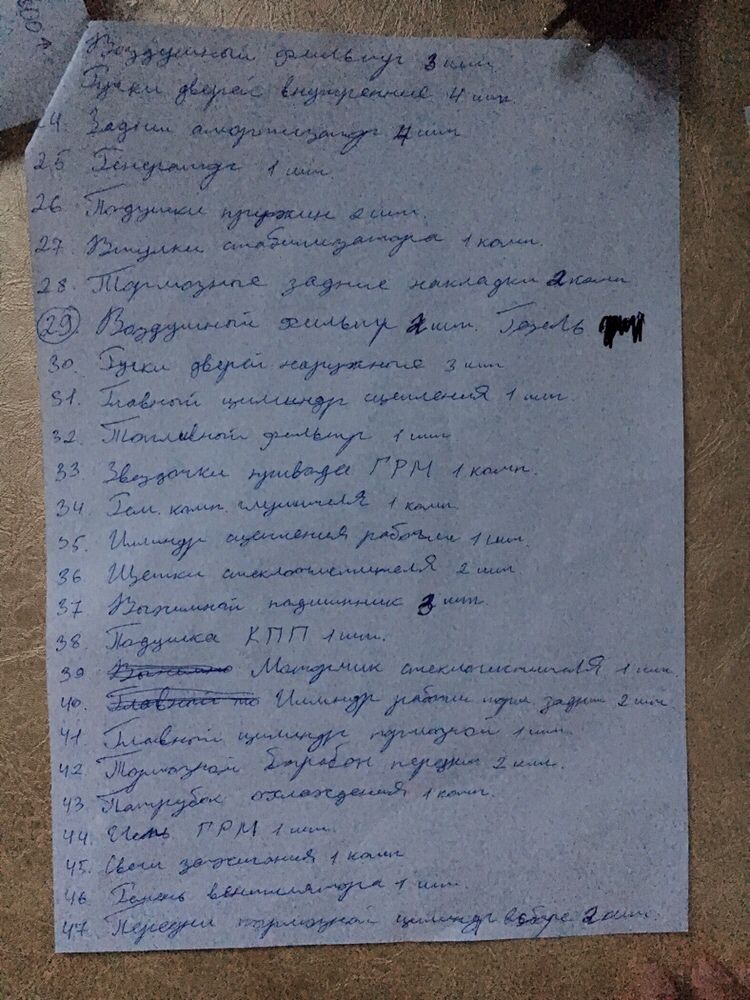 300
Воздушный фильтр 3 шт
Ручки дверей внутренние 4 шт.
24. Задний амортизатор 4 шт
25 Генератор 1 шт
26. Подушки пружин 2 шт.
27. Втулки стабилизатора 1 комп.
28. Тормозные задние накладки 2 комп
29. Воздушный фильтр 2 шт. Газель
30. Ручки дверей наружные 3 шт
31. Главный цилиндр сцепления 1 шт
32. Топливный фильтр 1 шт
33 Звездочки привода ГРМ 1 комп.
34. Рем. комп. глушителя 1 комп.
35. Цилиндр сцепления рабочий 1 шт.
36 Щетки стеклоочистителя 2 шт
37 Выжимной подшипник 3 шт.
38. Подушка КПП 1 шт.
39 Моторчик стеклоочистителя 1 шт.
40. Цилиндр рабочий торм. задний 2 шт
41. Главный цилиндр тормозной 1 шт.
42. Тормозной барабан передний 2 шт.
43. Патрубок охлаждения 1 комп.
44. Цепь ГРМ 1 шт.
45. Свечи зажигания 1 комп
46 Ремень вентилятора 1 шт.
47. Передний тормозной цилиндр в сборе 2 шт.